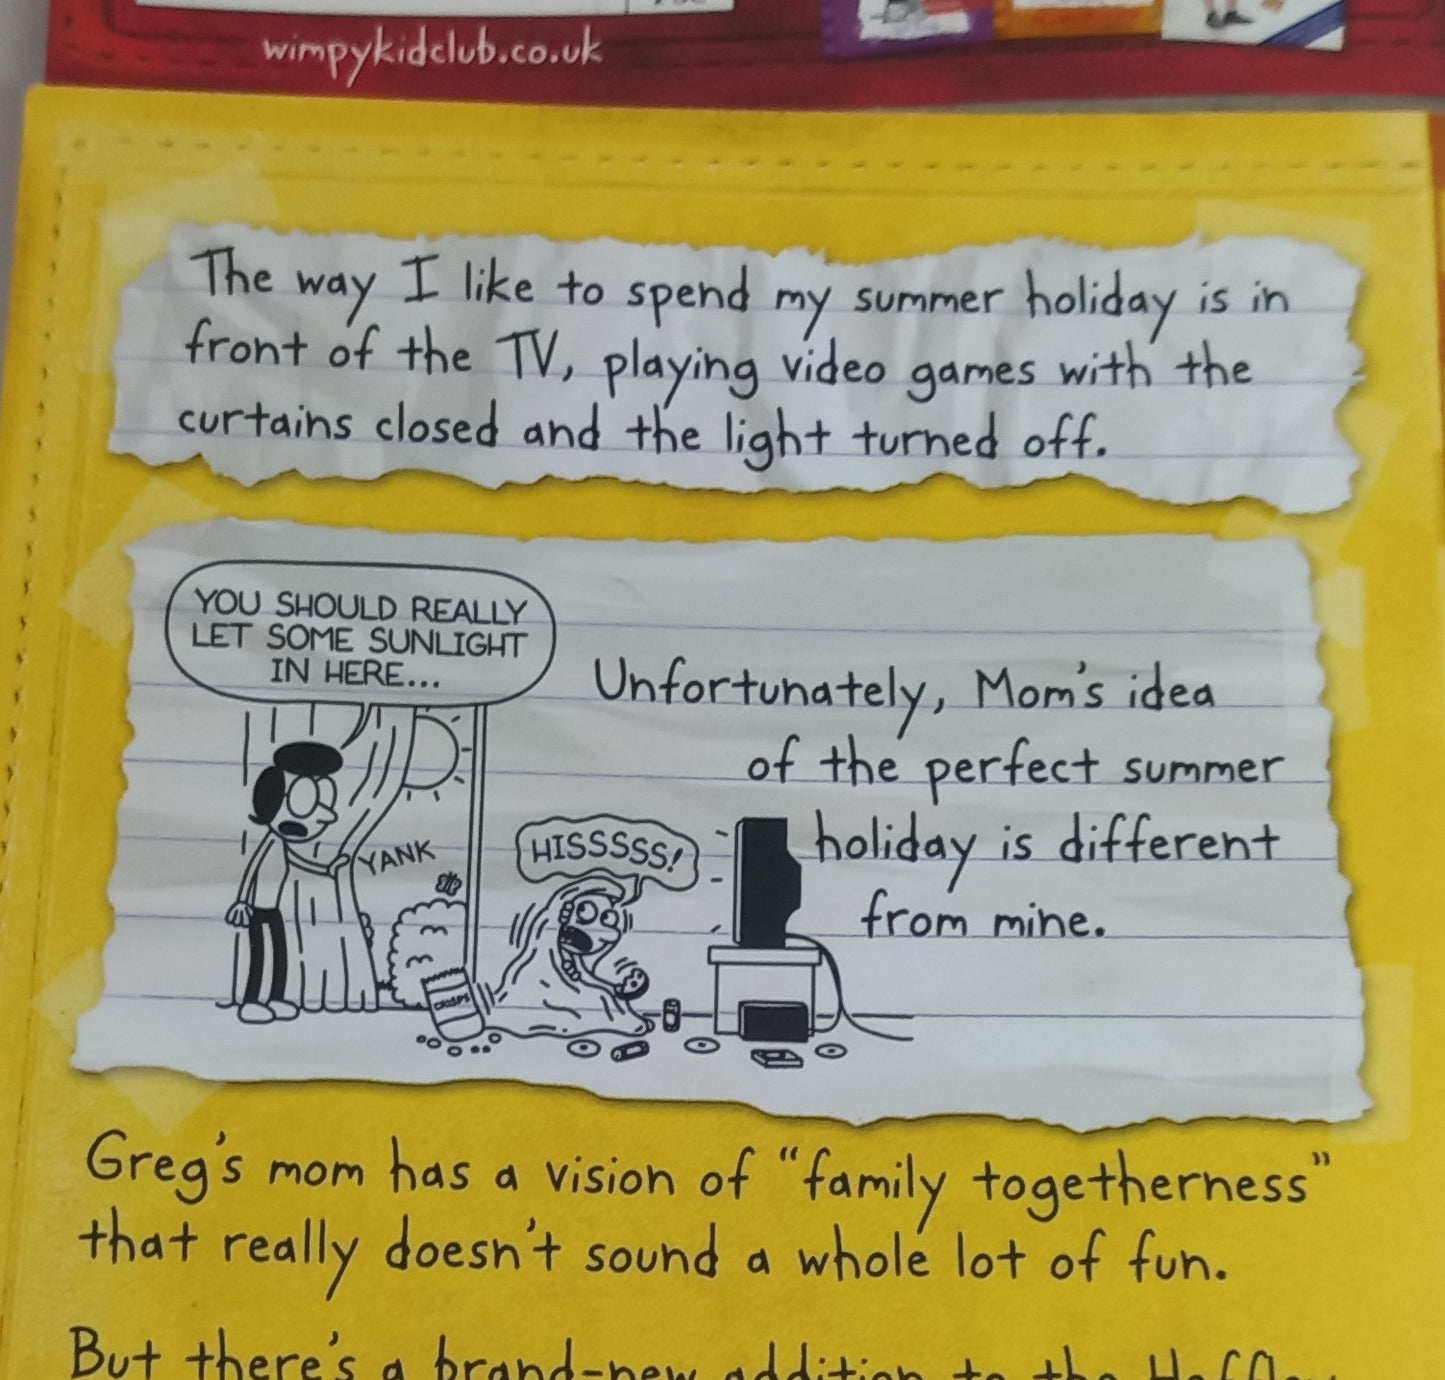 wimpykidclub.co.uk
The way I like to spend my summer holiday is in
front of the TV, playing video games with the
curtains closed and the light turned off.
YOU SHOULD REALLY
LET SOME SUNLIGHT
IN HERE...
Unfortunately, Mom's idea
of the perfect summer
holiday is different
from mine.
YANK
HISSSSS!
CRISPS
Greg's mom has a vision of "family togetherness"
that really doesn't sound a whole lot of fun.
But there's a brand-new addition to the